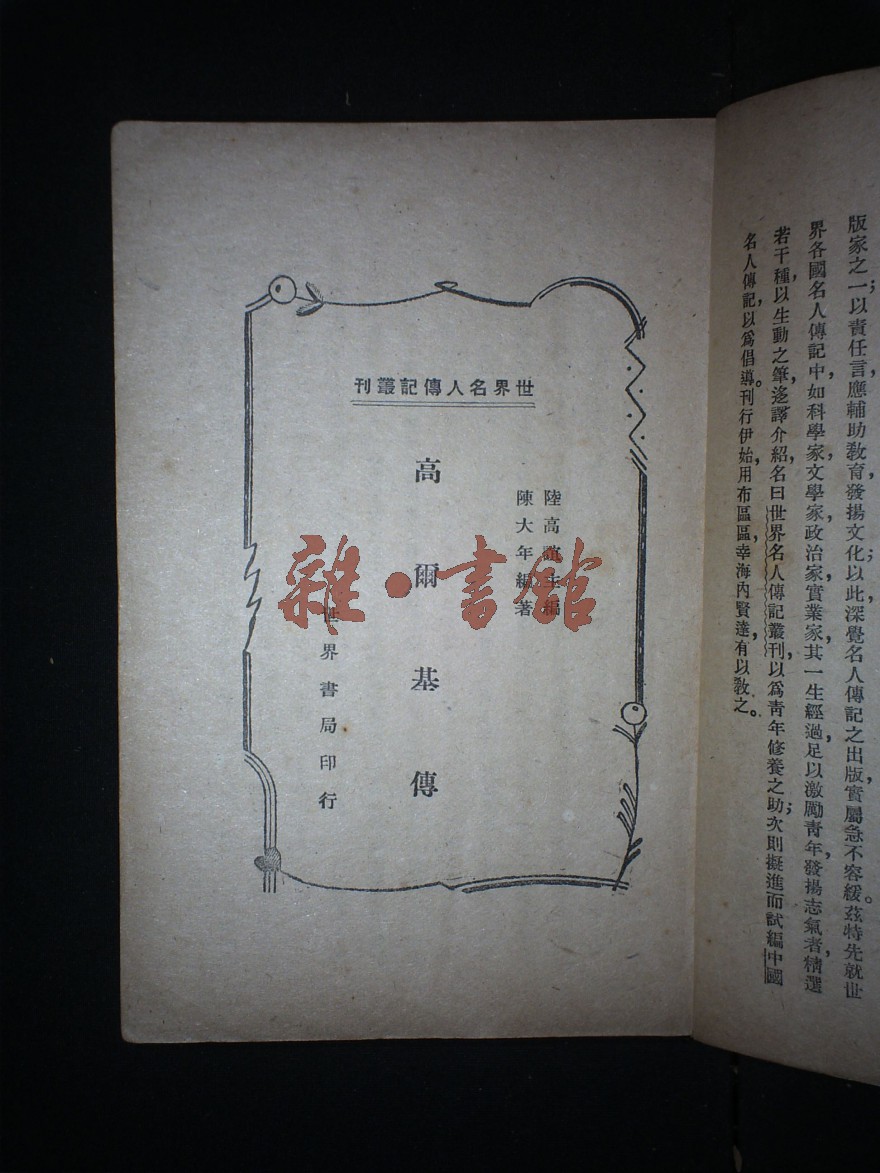 版家之一；以責任言，應輔助教育，發揚文化；以此深覺名人傳記之出版，實屬急不容緩。茲特先就世
界各國名人傳記中，如科學家，文學家，政治家，實業家，其一生經過，足以激勵青年，發揚志氣者，精選
若干種，以生動之筆，迻譯介紹，名曰世界名人傳記叢刊，以爲青年修養之助；次則擬進而試編中國
名人傳記，以爲倡導。刊行伊始，用布區區，幸海內賢達，有以教之。
世界名人傳記叢刊
陸高誼主編
陳大年編著
高爾基傳
世界書局印行
雜·書館